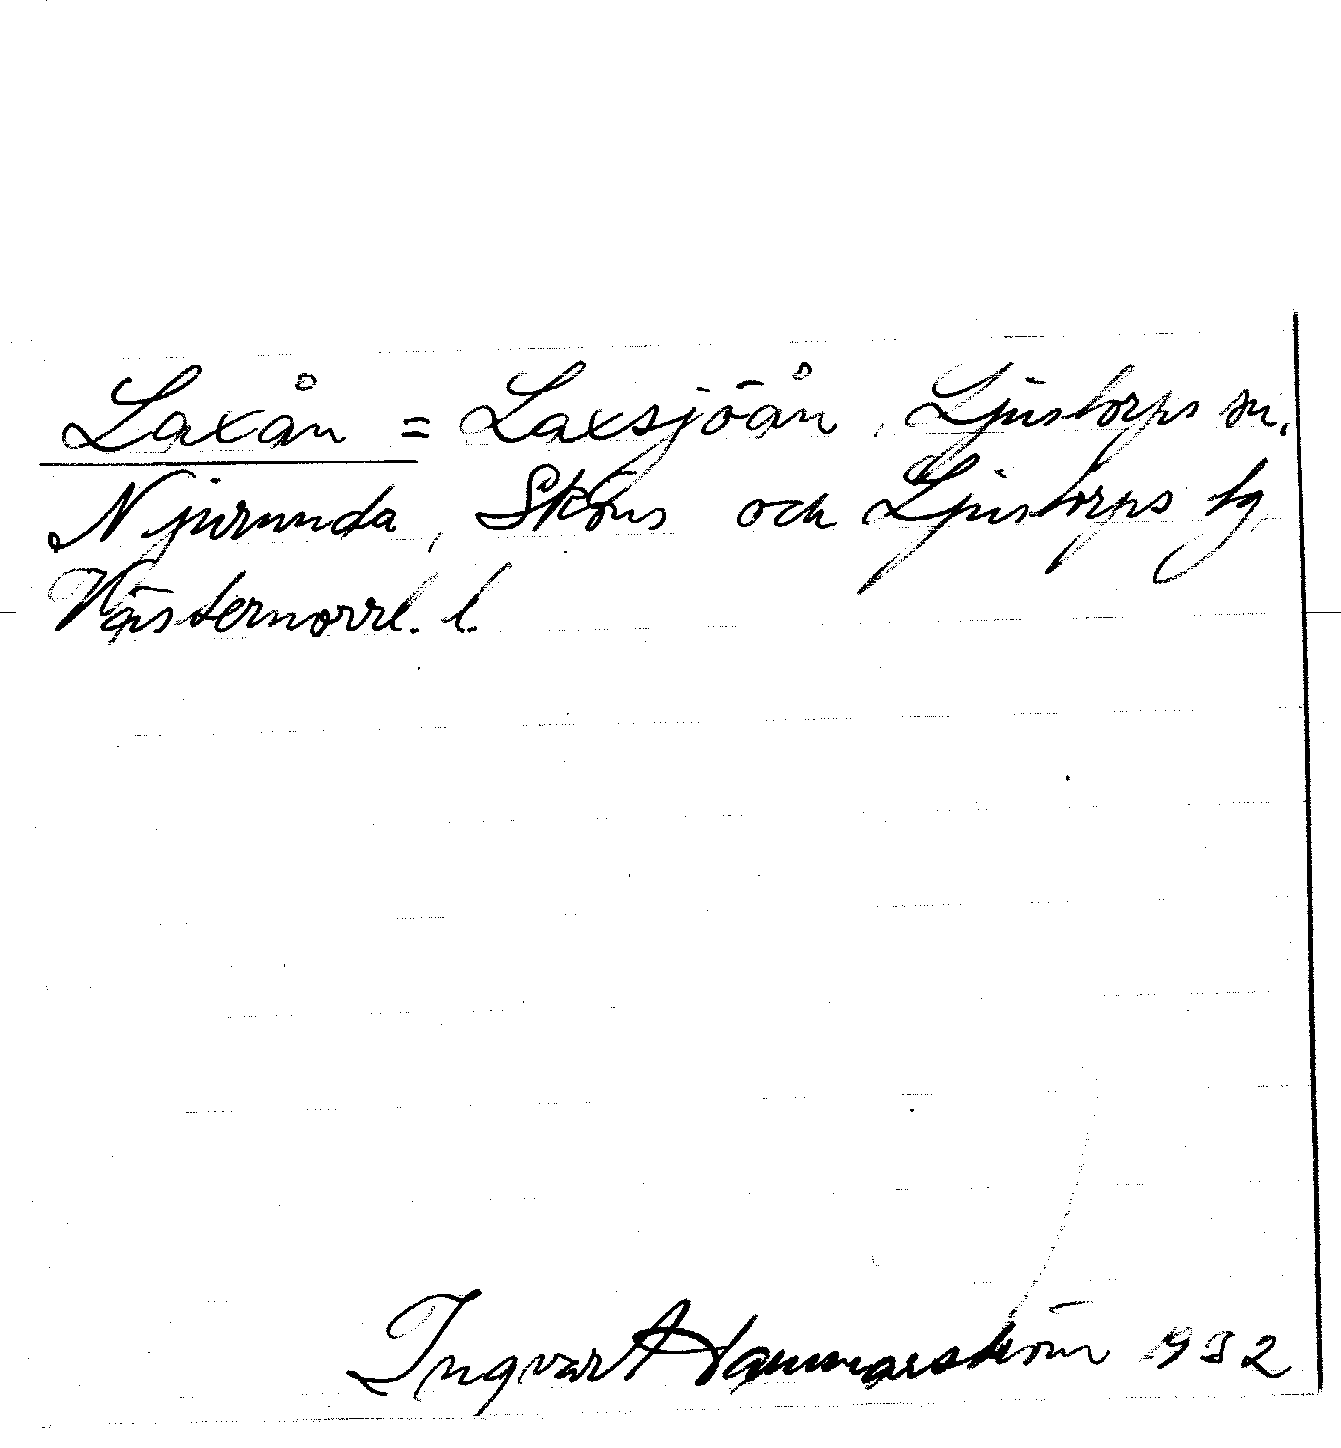 Laxån = Laxsjöån, Ljustorps sn.
Njurunda, Sköns och Ljustorps tg
Västernorrl. l.
Ingvar Hammarström 1932